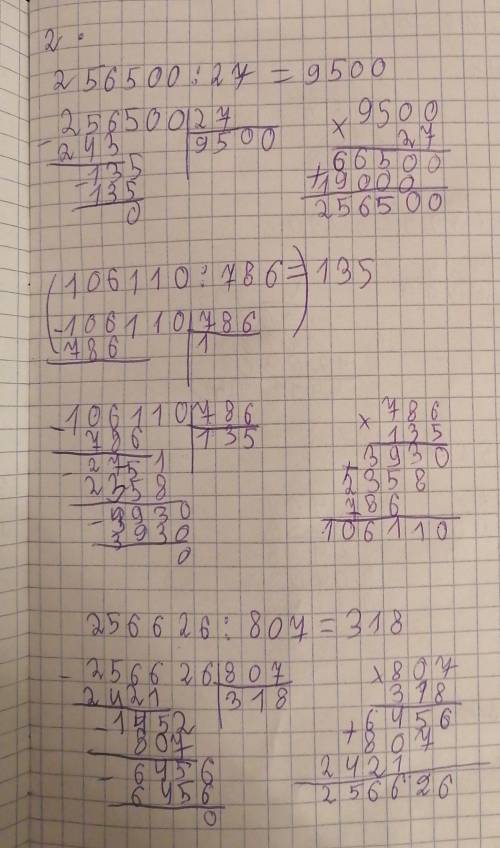 2.
256500 : 27 = 9500
- 256500 | 27
243 | 9500
- 135
135
0
× 9500
27
+ 66500
19000
256500
(106110 : 786 =) 135
- 106110 | 786
786 | 1
- 106110 | 786
786 | 135
- 2751
2358
- 3930
3930
0
× 786
135
+ 3930
2358
786
106110
256626 : 807 = 318
- 256626 | 807
2421 | 318
- 1452
807
- 6456
6456
0
× 807
318
+ 6456
807
2421
256626